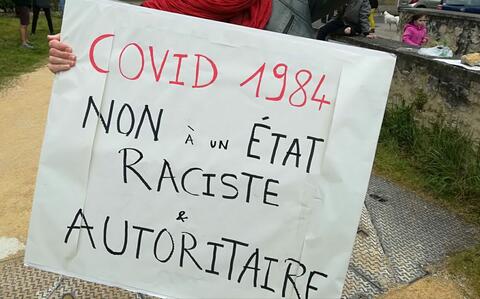 COVID 1984
NON À UN ÉTAT
RACISTE
&
AUTORITAIRE